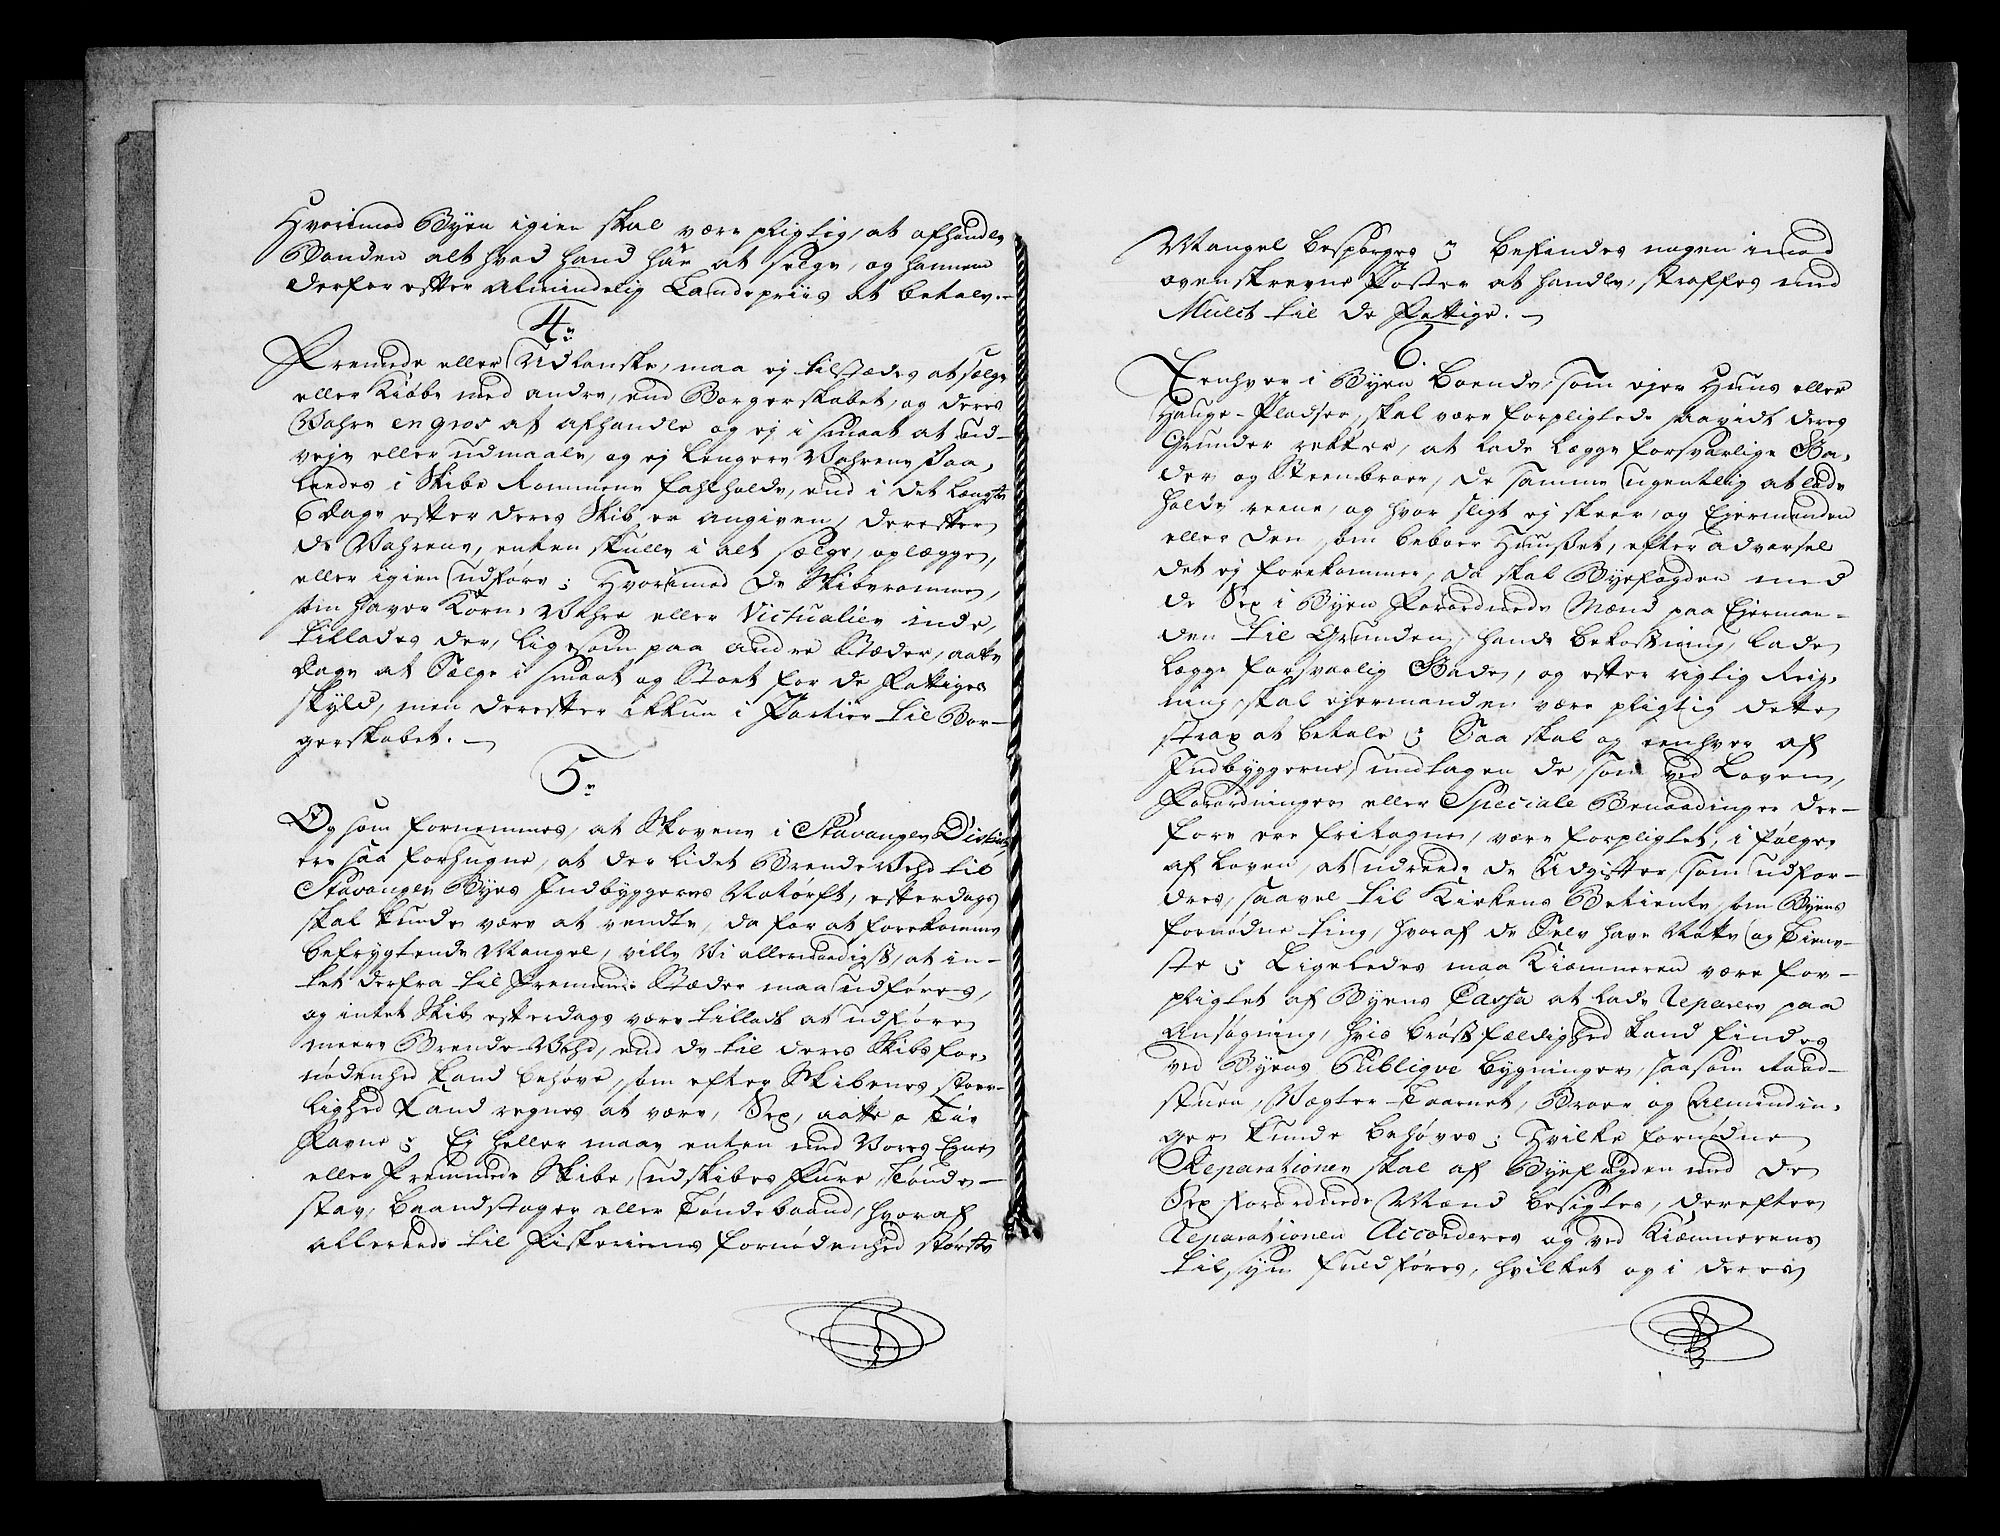 Hvorimod Byen igien skal være pligtig, at afhandle
Bonden alt hvad hand har at selge, og hannem
derfor efter almindelig Landepriis at betale.
4.
Fremede eller Udlanske, maa ej tilstædes at sælge
eller Kiøbe med andre, end Borgerskabet, og deres
Vahre en gros at afhandle og ej i smaat at ud-
veje eller udmaale, og ej lengere Vahrene saa-
ledes i Skibs Rommene fahlholde, end i det længste
6 Dage efter deres Skib er angiven, derefter
de Vahrene, enten skulle i alt sælge, oplægge,
eller igien udføre; Hvorimod de Skibsromme,
som haver Korn-Vahre eller Victualier inde,
tillades der, ligesom paa andre Stæder, aatte
Dage at Sælge i smaat og Stort for de Fattiges
skyld, men derefter ikkun i Partier til Bor-
gerskabet.
5.
Og som fornemmes, at Skovene i Stavanger District
ere saa forhugne, at der lidet Brende Vehd til
Stavanger Byes Indbyggeres Nødtørft, efterdags
skal kunde være at vendte, da for at forekomme
befrygtende Mangel, ville Vi allernaadigst, at in-
tet derfra til Fremmede Stæder maa udføres,
og intet Skib efterdags være tilladt at udføre
meere Brende-Vehd, end de til deres Skibs for-
nødenhed kand behøve, som efter Skibenes stoer-
lighed kand regnes at være, Sex, aatte a Tie
Favne; Ej heller maae enten med Vores Egne
eller Fremmede Skibe, udskibes Fure, Tønde-
stav, Baandstager eller Tøndebaand, hvoraf
allereede til Fiskeriens fornødenhed største
Mangel bespørges; befindes nogen imod
ovenskrevne Poster at handle, straffes med
Mulct til de Fattige.
6.
Eenhver i Byen Boende, som ejer Huus eller
Hauge-Pladser, skal være forpligtede saavidt deres
Grunder rekker, at lade Lægge forsvarlige Ga-
der og Steenbroer, de samme ugentlig at lade
holde reene, og hvor sligt ej skeer, og Ejermanden
eller den som beboer Huusset, efter advarsel
det ej forekommer, da skal Byefogden med
de Sex i Byen Forordnede Mænd paa Ejerman-
den til Grunden, hands bekostning, lade
Lægge forsvarlig Gade, og efter rigtig Reig-
ning, skal ejermanden være pligtig dette
strax at betale; Saa skal og eenhver af
Indbyggerne, undtagen de, som ved Loven,
Forordninger eller Speciale Benaadinger der-
fore ere fritagne, være forpligtet, i følge
af Loven, at udreede de Udgifter, som udfor-
dres, saavel til Kirkens Betiente, som Byens
fornødne ting, hvoraf de Selv have Nøtte og Tiene-
ste; Ligeledes maa Kiæmneren være for-
pligtet af Byens Cassa at lade Reparere paa
Ansøgning, hvis brøstfældighed kand findes
ved Byens Publiqve bygninger, saasom Raad-
stuen, Vægter-Taarnet, Broer og Almindin-
ger kunde behøves; Hvilke fornødne
Reparationer skal af Byefogden med de
Sex Forordnede Mænd besigtes, derefter
Reparationen Accorderes og ved Kiæmnerens
tilsyn fuldføres, hvilket og i deres